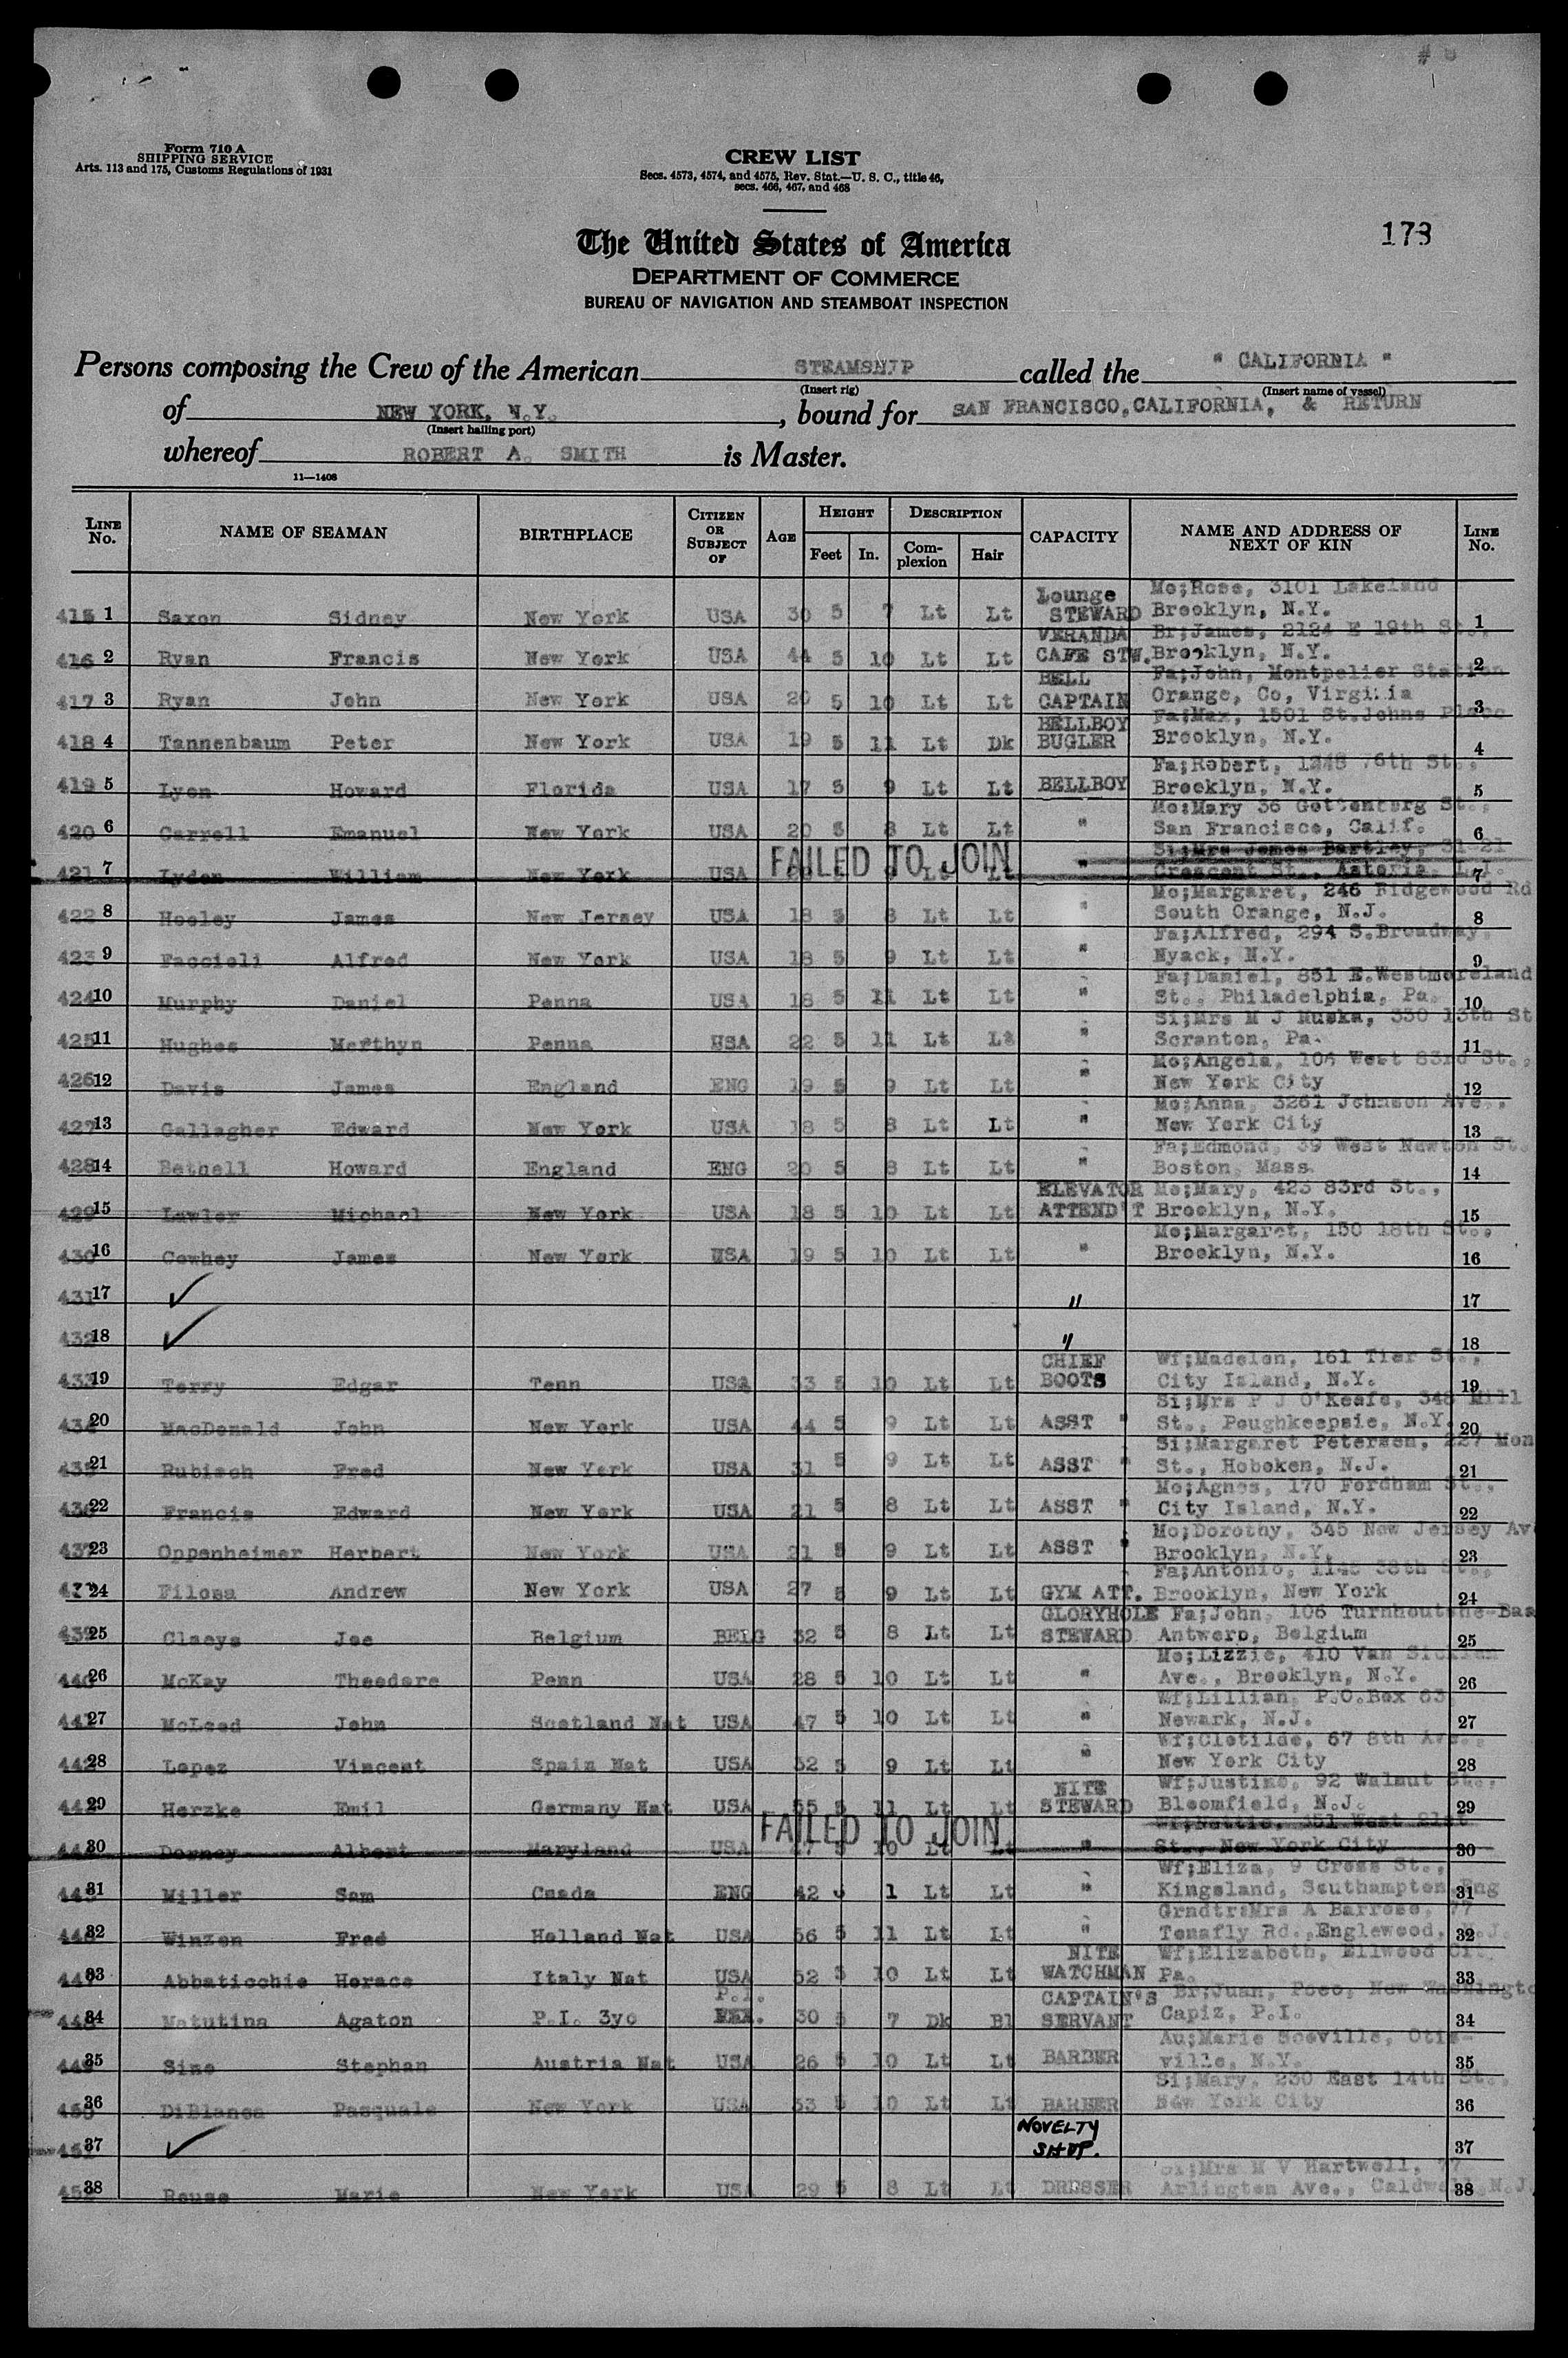 Form 710 A
SHIPPING SERVICE
Arts. 113 and 175, Customs Regulations of 1931
CREW LIST
Secs. 4573, 4574, and 4575, Rev. Stat.—U. S. C., title 46,
secs. 466, 467, and 468
173
The United States of America
DEPARTMENT OF COMMERCE
BUREAU OF NAVIGATION AND STEAMBOAT INSPECTION
Persons composing the Crew of the American STEAMSHIP called the " CALIFORNIA "
(Insert rig) (Insert name of vessel)
of NEW YORK, N.Y. , bound for SAN FRANCISCO, CALIFORNIA, & RETURN
(Insert hailing port)
whereof ROBERT A. SMITH is Master.
11—1408
LINE No. NAME OF SEAMAN BIRTHPLACE CITIZEN OR SUBJECT OF AGE HEIGHT Feet In. DESCRIPTION Complexion Hair CAPACITY NAME AND ADDRESS OF NEXT OF KIN LINE No.
415 1 Saxon Sidney New York USA 30 5 7 Lt Lt Lounge STEWARD Mo;Rose, 3101 Lakeland Brooklyn, N.Y. 1
416 2 Ryan Francis New York USA 44 5 10 Lt Lt VERANDA CAFE STW. Br;James, 2124 E 19th St., Brooklyn, N.Y. 2
417 3 Ryan John New York USA 20 5 10 Lt Lt BELL CAPTAIN Fa;John, Montpelier Station Orange, Co, Virginia 3
418 4 Tannenbaum Peter New York USA 19 5 11 Lt Dk BELLBOY BUGLER Fa;Max, 1501 St.Johns Place Brooklyn, N.Y. 4
419 5 Lyon Howard Florida USA 17 5 9 Lt Lt BELLBOY Fa;Robert, 1248 76th St., Brooklyn, N.Y. 5
420 6 Carrell Emanuel New York USA 20 5 8 Lt Lt " Mo;Mary 36 Gottenberg St., San Francisco, Calif. 6
421 7 Lyden William New York USA FAILED TO JOIN Lt Lt " Si;Mrs James Bartley, 31-21 Crescent St., Astoria, L.I. 7
422 8 Hooley James New Jersey USA 18 5 8 Lt Lt " Mo;Margaret, 246 Ridgewood Rd South Orange, N.J. 8
423 9 Faccioli Alfred New York USA 18 5 9 Lt Lt " Fa;Alfred, 294 S.Broadway, Nyack, N.Y. 9
424 10 Murphy Daniel Penna USA 18 5 11 Lt Lt " Fa;Daniel, 851 E.Westmoreland St., Philadelphia, Pa. 10
425 11 Hughes Merthyn Penna USA 22 5 11 Lt Lt " Si;Mrs M J Muska, 330 13th St Scranton, Pa. 11
426 12 Davis James England ENG 19 5 9 Lt Lt " Mo;Angela, 106 West 83rd St., New York City 12
427 13 Gallagher Edward New York USA 18 5 8 Lt Lt " Mo;Anna, 3261 Johnson Ave., New York City 13
428 14 Bethell Howard England ENG 20 5 8 Lt Lt " Fa;Edmond, 39 West Newton St. Boston, Mass. 14
429 15 Lawler Michael New York USA 18 5 10 Lt Lt ELEVATOR ATTEND'T Mo;Mary, 423 83rd St., Brooklyn, N.Y. 15
430 16 Cowhey James New York USA 19 5 10 Lt Lt " Mo;Margaret, 150 18th St., Brooklyn, N.Y. 16
431 17 ✓ " 17
432 18 ✓ " 18
433 19 Terry Edgar Tenn USA 33 5 10 Lt Lt CHIEF BOOTS Wf;Madelen, 161 Tier St., City Island, N.Y. 19
434 20 MacDonald John New York USA 44 5 9 Lt Lt ASST " Si;Mrs P J O'Keafe, 348 Mill St., Poughkeepsie, N.Y. 20
435 21 Rubisch Fred New York USA 31 5 9 Lt Lt ASST " Si;Margaret Petersen, 227 Mon St., Hoboken, N.J. 21
436 22 Francis Edward New York USA 21 5 8 Lt Lt ASST " Mo;Agnes, 170 Fordham St., City Island, N.Y. 22
437 23 Oppenheimer Herbert New York USA 21 5 9 Lt Lt ASST " Mo;Dorothy, 345 New Jersey Av Brooklyn, N.Y. 23
24 Filosa Andrew New York USA 27 5 9 Lt Lt GYM ATT. Fa;Antonio, 1145 38th St., Brooklyn, New York 24
439 25 Claeys Joe Belgium BELG 32 5 8 Lt Lt GLORYHOLE STEWARD Fa;John, 106 Antwerp, Belgium 25
440 26 McKay Theodore Penn USA 28 5 10 Lt Lt " Mo;Lizzie, 410 Van Sicklen Ave., Brooklyn, N.Y. 26
441 27 McLeod John Scotland Nat USA 47 5 10 Lt Lt " Wf;Lillian, P.O.Box 63 Newark, N.J. 27
442 28 Lopez Vincent Spain Nat USA 32 5 9 Lt Lt " Wf;Clotilde, 67 8th Ave., New York City 28
443 29 Herzke Emil Germany Nat USA 55 5 11 Lt Lt NITE STEWARD Wf;Justine, 92 Walnut St., Bloomfield, N.J. 29
444 30 Dorney Albert Maryland USA FAILED TO JOIN 47 5 10 Lt Lt " Wf;Nettie, 351 West 21st St., New York City 30
445 31 Miller Sam Cnada ENG 42 1 Lt Lt " Wf;Eliza, 9 Cross St., Kingsland, Southampton Eng 31
446 32 Winzen Fred Holland Nat USA 56 5 11 Lt Lt " Grndtr;Mrs A Barrose, 77 Tenafly Rd.,Englewood, N.J. 32
447 33 Abbaticchie Horace Italy Nat USA 52 5 10 Lt Lt NITE WATCHMAN Wf;Elizabeth, Ellwood Cit. Pa. 33
448 34 Matutina Agaton P.I. 3yo P.I. 30 5 7 Dk Bl CAPTAIN'S SERVANT Br;Juan, Poeo, New Washingto Capiz, P.I. 34
449 35 Sine Stephan Austria Nat USA 26 5 10 Lt Lt BARBER Au;Marie Sceville, Otis- ville, N.Y. 35
450 36 DiBlanca Pasquale New York USA 33 5 10 Lt Lt BARBER Si;Mary, 230 East 14th St., New York City 36
451 37 ✓ NOVELTY SHOP. 37
452 38 Rouse Marie New York USA 29 5 8 Lt Lt DRESSER Mrs M V Hartwell, 77 Arlington Ave., Caldwell, N.J. 38